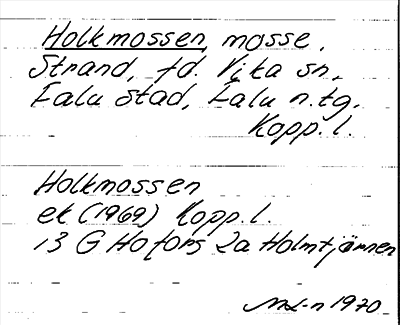 Holkmossen, mosse.
Strand, fd. Vika sn,
Falu stad, Falu n.tg.
Kopp. l.
Holkmossen
ek (1969) Kopp. l.
13 G Hofors 2a Holmtjärnen
1970